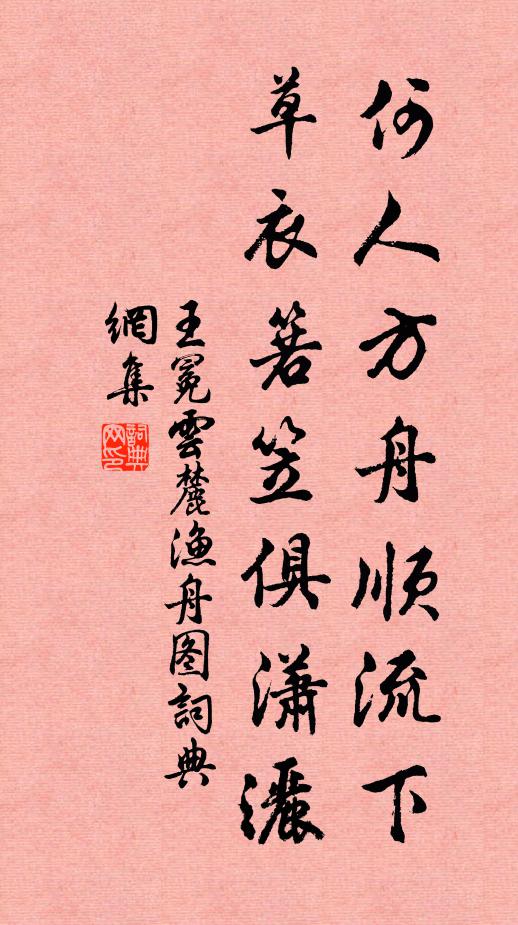 何人方舟順流下
草衣箬笠俱瀟灑
王冕雲麓漁舟图詞典
網集
詞典網印